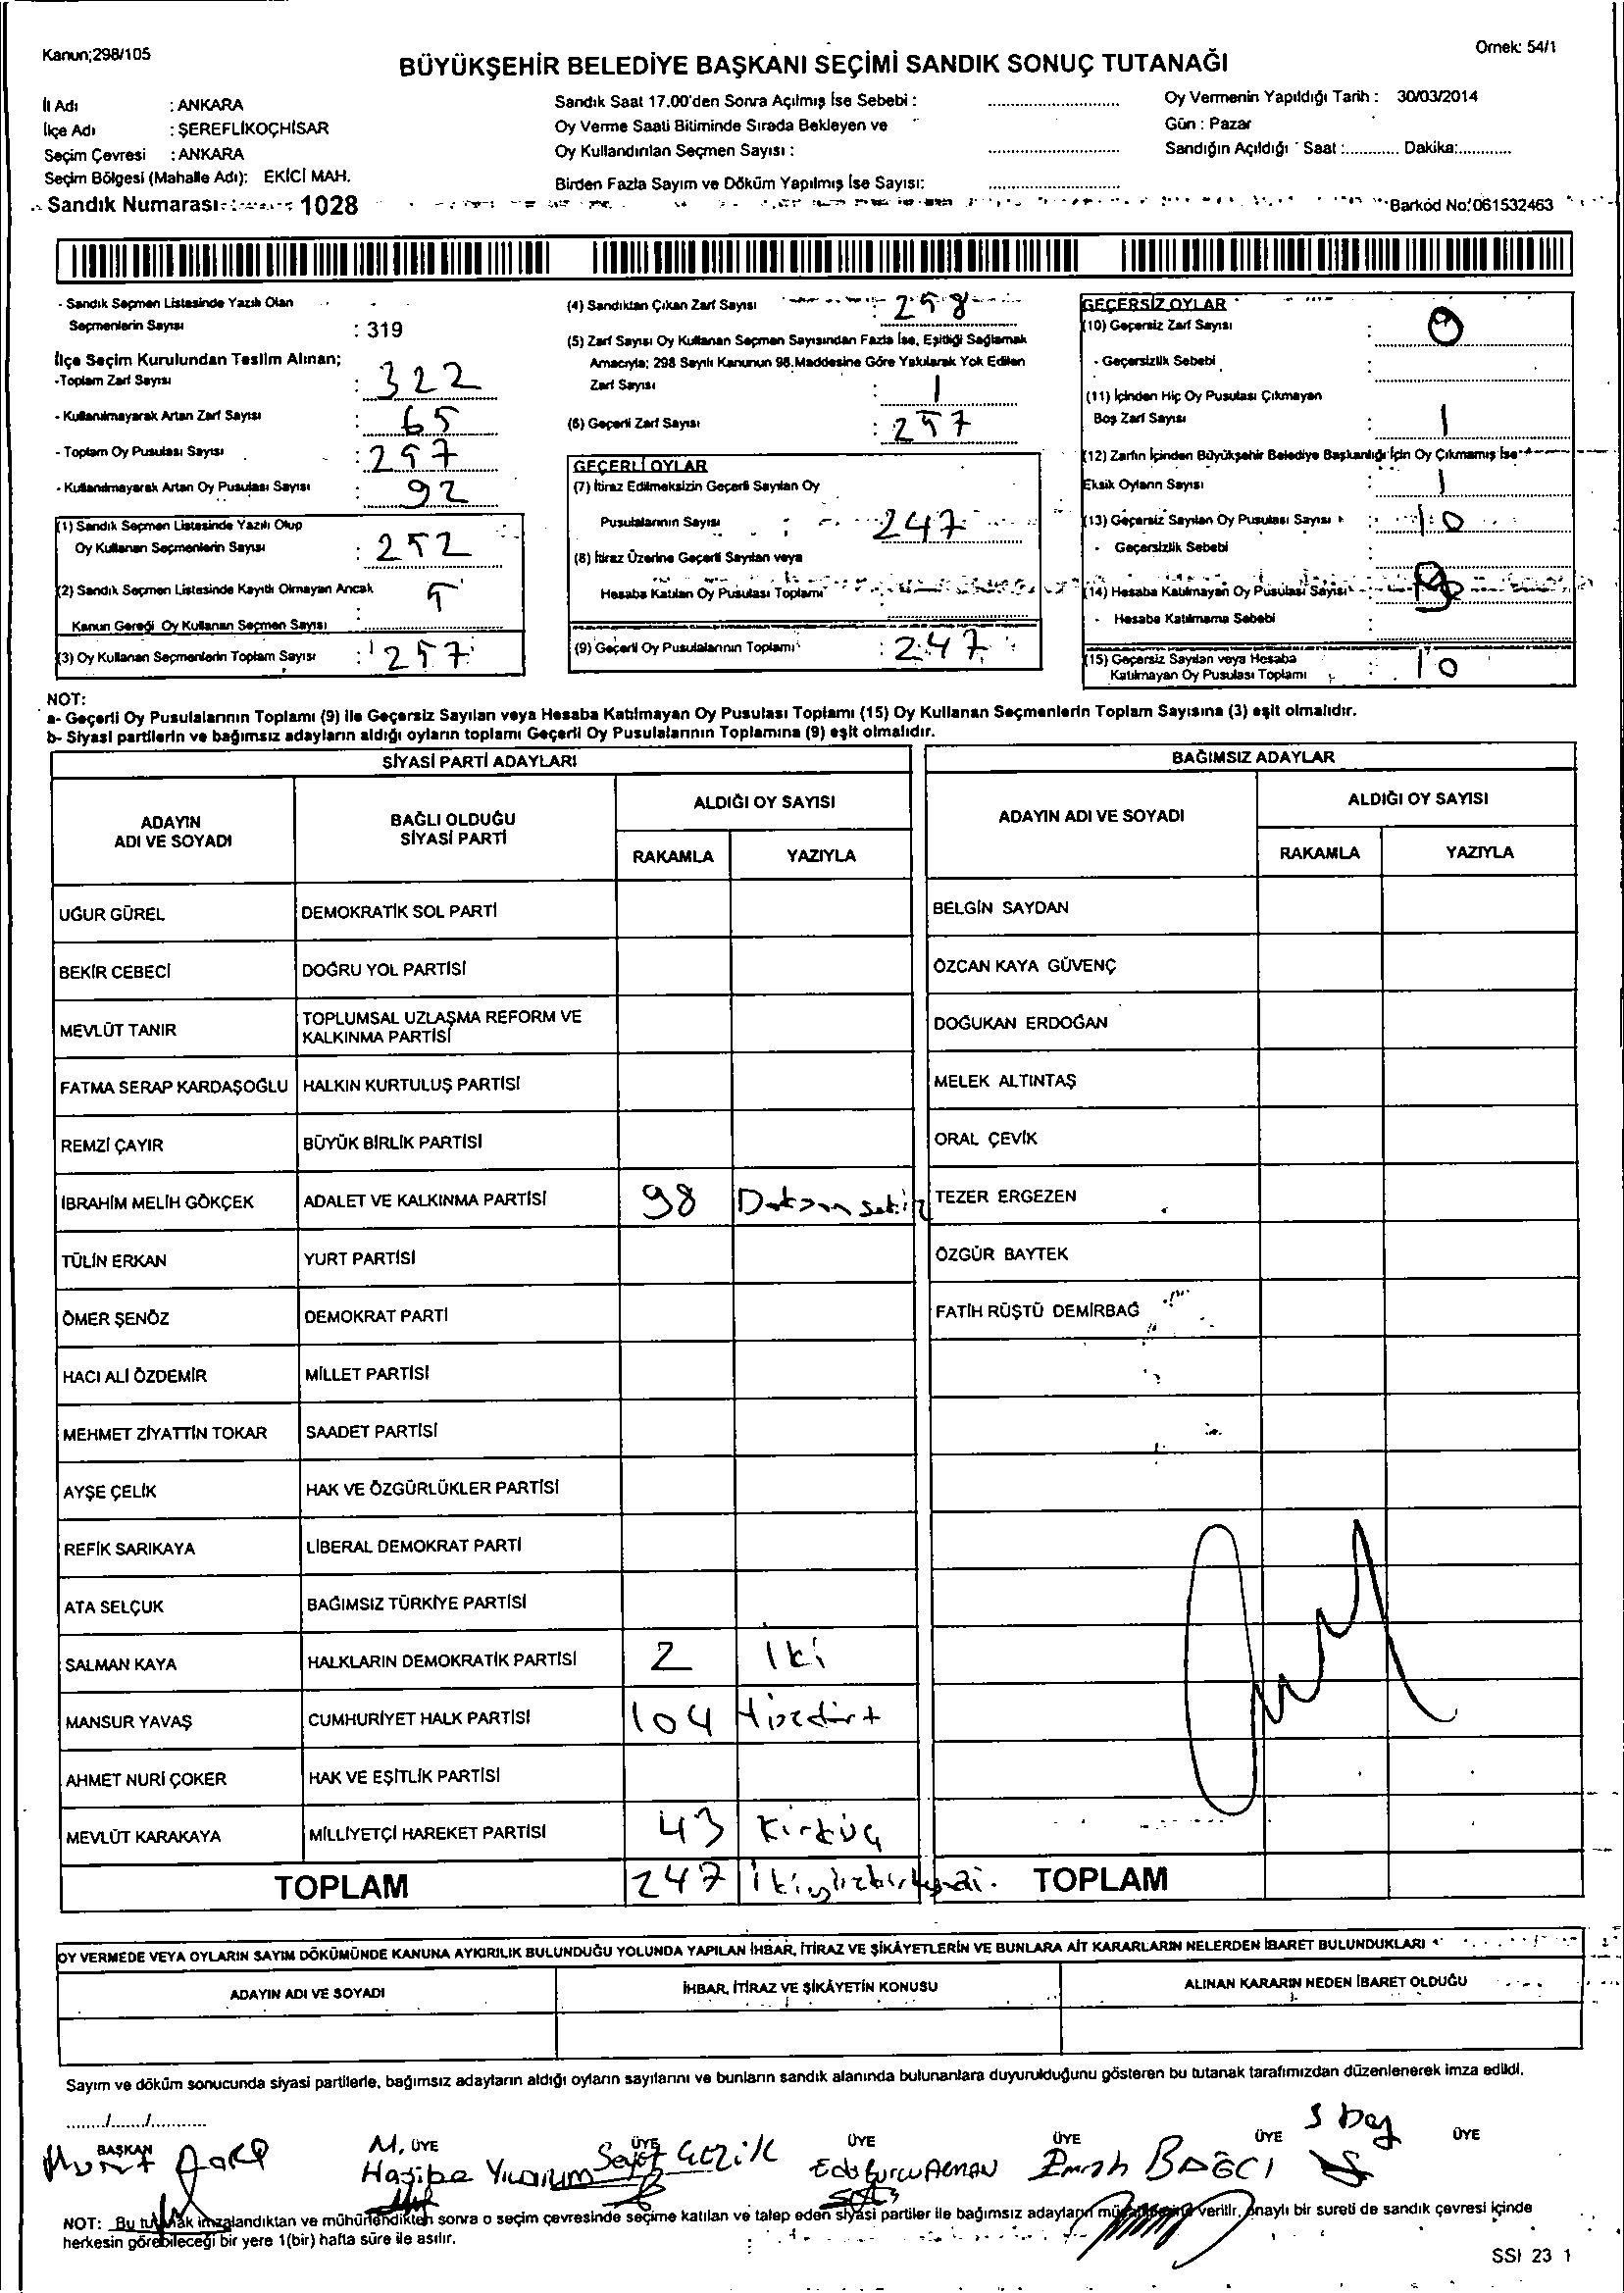 Kanun;298/105
Örnek: 54/1
BÜYÜKŞEHİR BELEDİYE BAŞKANI SEÇİMİ SANDIK SONUÇ TUTANAĞI
İl Adı : ANKARA
İlçe Adı : ŞEREFLİKOÇHİSAR
Seçim Çevresi : ANKARA
Seçim Bölgesi (Mahalle Adı): EKİCİ MAH.
Sandık Numarası 1028
Sandık Saat 17.00'den Sonra Açılmış İse Sebebi :
Oy Verme Saati Bitiminde Sırada Bekleyen ve
Oy Kullandırılan Seçmen Sayısı :
Birden Fazla Sayım ve Döküm Yapılmış İse Sayısı:
Oy Vermenin Yapıldığı Tarih : 30/03/2014
Gün : Pazar
Sandığın Açıldığı Saat :............ Dakika:............
Barkod No:061532463
- Sandık Seçmen Listesinde Yazılı Olan
Seçmenlerin Sayısı : 319
İlçe Seçim Kurulundan Teslim Alınan;
-Toplam Zarf Sayısı : 322
- Kullanılmayarak Artan Zarf Sayısı : 65
- Toplam Oy Pusulası Sayısı : 297
- Kullanılmayarak Artan Oy Pusulası Sayısı : 92
(1) Sandık Seçmen Listesinde Yazılı Olup
Oy Kullanan Seçmenlerin Sayısı : 252
(2) Sandık Seçmen Listesinde Kayıtlı Olmayan Ancak
Kanun Gereği Oy Kullanan Seçmen Sayısı : 5
(3) Oy Kullanan Seçmenlerin Toplam Sayısı : 257
(4) Sandıktan Çıkan Zarf Sayısı : 258
(5) Zarf Sayısı Oy Kullanan Seçmen Sayısından Fazla İse, Eşitliği Sağlamak
Amacıyla; 298 Sayılı Kanunun 98.Maddesine Göre Yakılarak Yok Edilen
Zarf Sayısı : 1
(6) Geçerli Zarf Sayısı : 257
GEÇERLİ OYLAR
(7) İtiraz Edilmeksizin Geçerli Sayılan Oy
Pusulalarının Sayısı : 247
(8) İtiraz Üzerine Geçerli Sayılan veya
Hesaba Katılan Oy Pusulası Toplamı
(9) Geçerli Oy Pusulalarının Toplamı : 247
GEÇERSİZ OYLAR
(10) Geçersiz Zarf Sayısı : 0
- Geçersizlik Sebebi :
(11) İçinden Hiç Oy Pusulası Çıkmayan
Boş Zarf Sayısı : 1
(12) Zarfın İçinden Büyükşehir Belediye Başkanlığı İçin Oy Çıkmamış İse
Eksik Oyların Sayısı : 1
(13) Geçersiz Sayılan Oy Pusulası Sayısı : 10
- Geçersizlik Sebebi :
(14) Hesaba Katılmayan Oy Pusulası Sayısı
- Hesaba Katılmama Sebebi :
(15) Geçersiz Sayılan veya Hesaba
Katılmayan Oy Pusulası Toplamı : 10
NOT:
a- Geçerli Oy Pusulalarının Toplamı (9) ile Geçersiz Sayılan veya Hesaba Katılmayan Oy Pusulası Toplamı (15) Oy Kullanan Seçmenlerin Toplam Sayısına (3) eşit olmalıdır.
b- Siyasi partilerin ve bağımsız adayların aldığı oyların toplamı Geçerli Oy Pusulalarının Toplamına (9) eşit olmalıdır.
SİYASİ PARTİ ADAYLARI
ADAYIN ADI VE SOYADI BAĞLI OLDUĞU SİYASİ PARTİ ALDIĞI OY SAYISI
RAKAMLA YAZIYLA
UĞUR GÜREL DEMOKRATİK SOL PARTİ
BEKİR CEBECİ DOĞRU YOL PARTİSİ
MEVLÜT TANIR TOPLUMSAL UZLAŞMA REFORM VE KALKINMA PARTİSİ
FATMA SERAP KARDAŞOĞLU HALKIN KURTULUŞ PARTİSİ
REMZİ ÇAYIR BÜYÜK BİRLİK PARTİSİ
İBRAHİM MELİH GÖKÇEK ADALET VE KALKINMA PARTİSİ 98 Doksan sekiz
TÜLİN ERKAN YURT PARTİSİ
ÖMER ŞENÖZ DEMOKRAT PARTİ
HACI ALİ ÖZDEMİR MİLLET PARTİSİ
MEHMET ZİYATTİN TOKAR SAADET PARTİSİ
AYŞE ÇELİK HAK VE ÖZGÜRLÜKLER PARTİSİ
REFİK SARIKAYA LİBERAL DEMOKRAT PARTİ
ATA SELÇUK BAĞIMSIZ TÜRKİYE PARTİSİ
SALMAN KAYA HALKLARIN DEMOKRATİK PARTİSİ 2 İki
MANSUR YAVAŞ CUMHURİYET HALK PARTİSİ 104 Yüzdört
AHMET NURİ ÇOKER HAK VE EŞİTLİK PARTİSİ
MEVLÜT KARAKAYA MİLLİYETÇİ HAREKET PARTİSİ 43 Kırküç
TOPLAM 247 İkiyüzkırkyedi.
BAĞIMSIZ ADAYLAR
ADAYIN ADI VE SOYADI ALDIĞI OY SAYISI
RAKAMLA YAZIYLA
BELGİN SAYDAN
ÖZCAN KAYA GÜVENÇ
DOĞUKAN ERDOĞAN
MELEK ALTINTAŞ
ORAL ÇEVİK
TEZER ERGEZEN
ÖZGÜR BAYTEK
FATİH RÜŞTÜ DEMİRBAĞ
TOPLAM
OY VERMEDE VEYA OYLARIN SAYIM DÖKÜMÜNDE KANUNA AYKIRILIK BULUNDUĞU YOLUNDA YAPILAN İHBAR, İTİRAZ VE ŞİKÂYETLERİN VE BUNLARA AİT KARARLARIN NELERDEN İBARET BULUNDUKLARI
ADAYIN ADI VE SOYADI İHBAR, İTİRAZ VE ŞİKÂYETİN KONUSU ALINAN KARARIN NEDEN İBARET OLDUĞU
Sayım ve döküm sonucunda siyasi partilerle, bağımsız adayların aldığı oyların sayılarını ve bunların sandık alanında bulunanlara duyurulduğunu gösteren bu tutanak tarafımızdan düzenlenerek imza edildi.
......../......../...........
BAŞKAN ÜYE ÜYE ÜYE ÜYE ÜYE ÜYE
Murat M. Hasibe YILDIRIM GEZİK Emrah BAĞCI
NOT: Bu tutanak imzalandıktan ve mühürlendikten sonra o seçim çevresinde seçime katılan ve talep eden siyasi partiler ile bağımsız adayların verilir, onaylı bir sureti de sandık çevresi içinde
herkesin görebileceği bir yere 1(bir) hafta süre ile asılır.
SSI 23 1